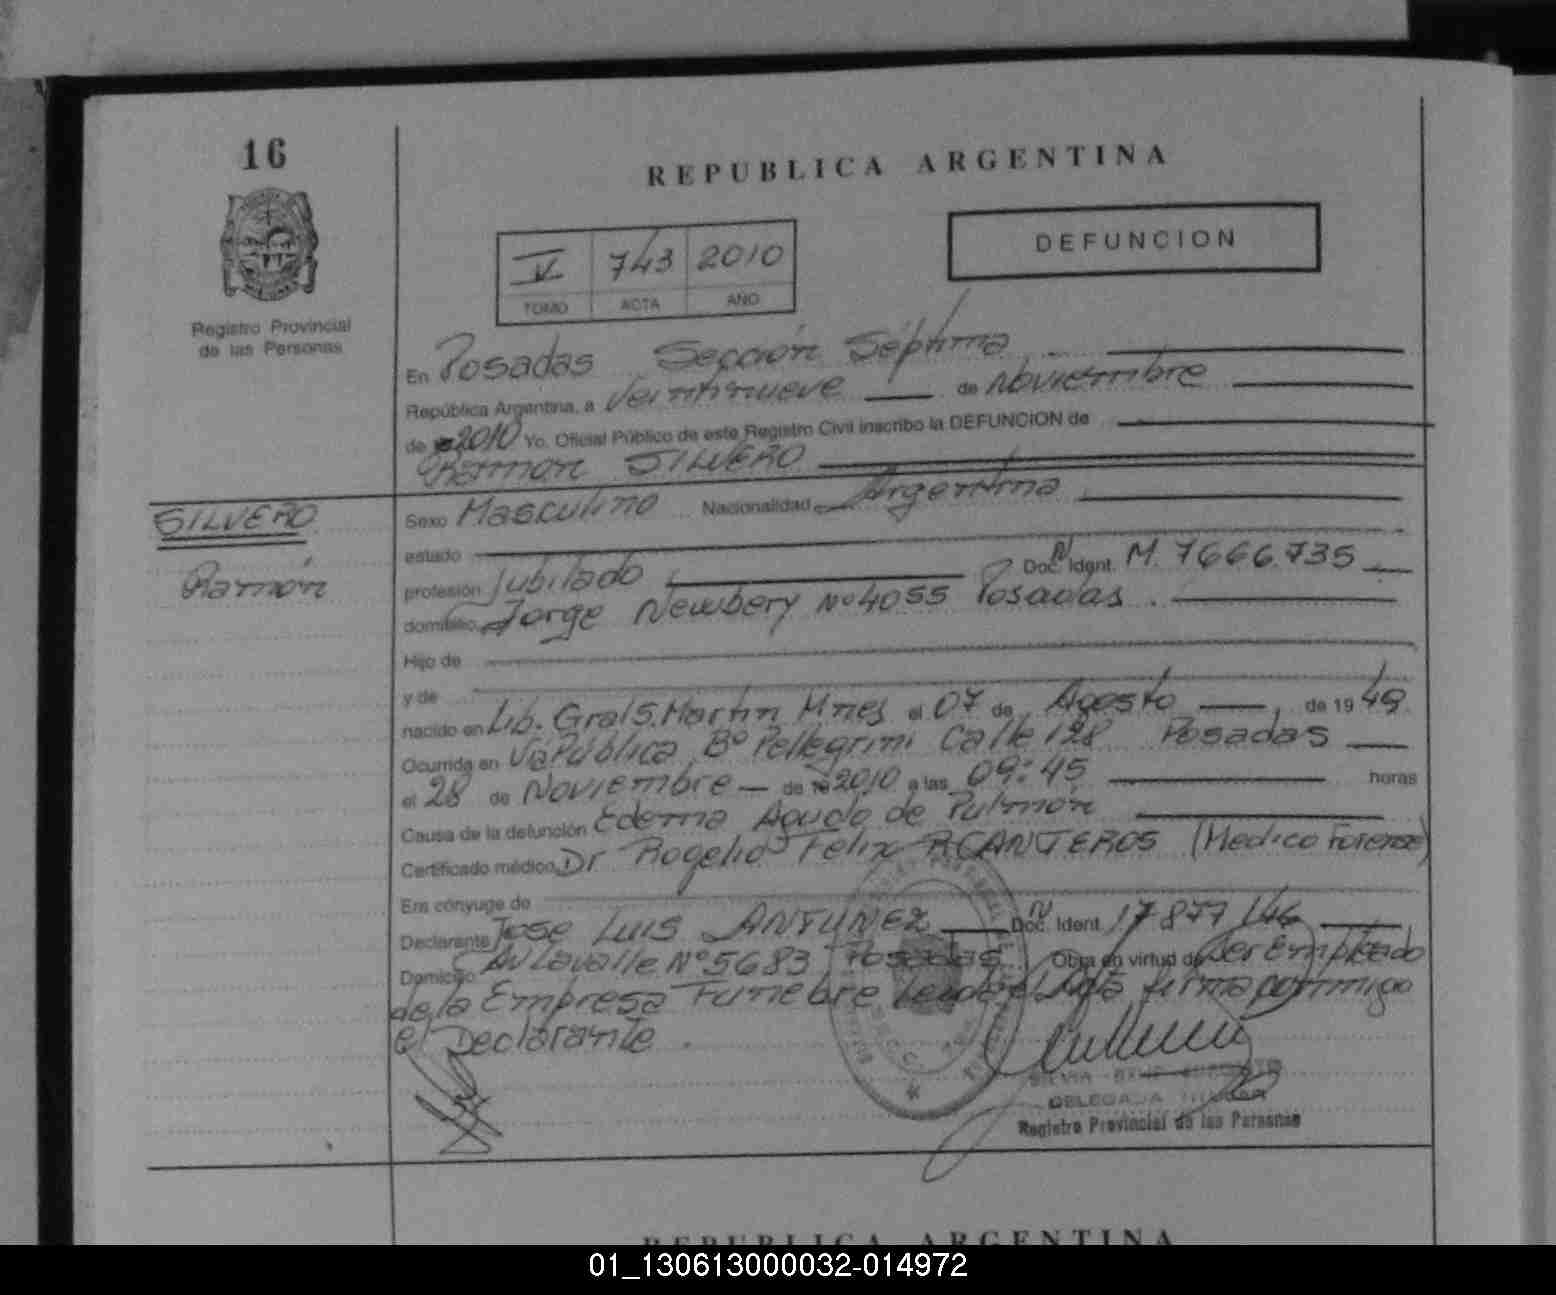 16
REPUBLICA ARGENTINA
DEFUNCION
V 743 2010
TOMO ACTA AÑO
Registro Provincial
de las Personas
En Posadas Sección Séptima
República Argentina, a Veintinueve de Noviembre
de 2010 Yo, Oficial Público de este Registro Civil inscribo la DEFUNCION de
Ramón SILVERO
SILVERO
Ramón
Sexo Masculino Nacionalidad Argentina
estado
profesión Jubilado Doc. Ident. M. 7666.735
domicilio Jorge Newbery Nº 4055 Posadas.
Hijo de
y de
nacido en Lib. Gral S. Martín Mnes el 07 de Agosto de 1949
Ocurrida en Vía Pública Bº Pellegrini Calle 128 Posadas
el 28 de Noviembre de 2010 a las 09:45 horas
Causa de la defunción Edema Agudo de Pulmón
Certificado médico Dr Rogelio Felix RCANTEROS (Medico Forense)
Era cónyuge de
Declarante Jose Luis ANTUNEZ Doc. Ident. 17.877.146
Domicilio Av Lavalle Nº 5683 Posadas Obra en virtud de Ser Empleado
de la Empresa Funebre Leida el Acta firma conmigo
el Declarante.
DELEGADA TITULAR
Registro Provincial de las Personas
REPUBLICA ARGENTINA
01_130613000032-014972